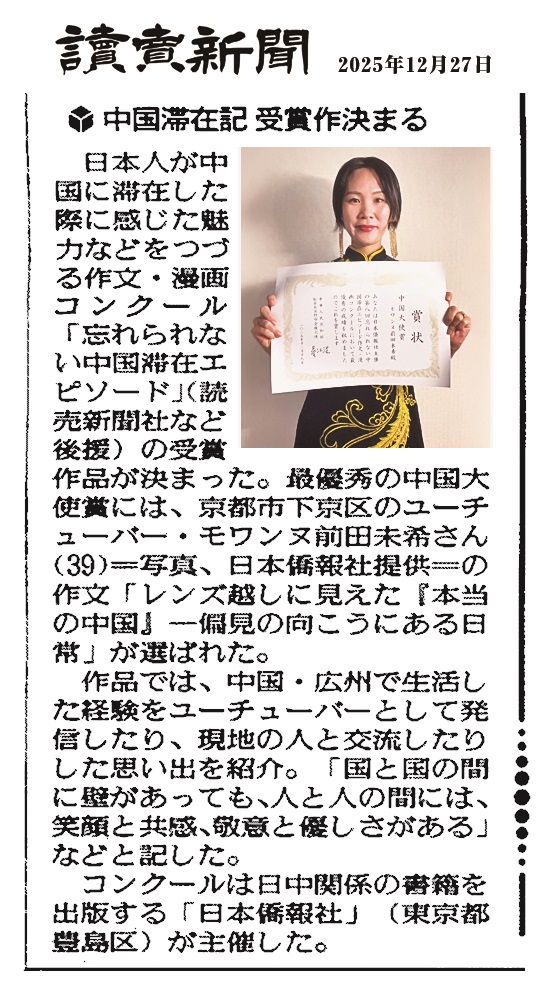 讀賣新聞
2025年12月27日
中国滞在記 受賞作決まる
日本人が中
国に滞在した
際に感じた魅
力などをつづ
る作文・漫画
コンクール
「忘れられな
い中国滞在エ
ピソード」(読
売新聞社など
後援)の受賞
作品が決まった。最優秀の中国大
使賞には、京都市下京区のユーチ
ューバー・モワンヌ前田未希さん
(39)=写真、日本僑報社提供=の
作文「レンズ越しに見えた『本当
の中国』―偏見の向こうにある日
常」が選ばれた。
作品では、中国・広州で生活し
た経験をユーチューバーとして発
信したり、現地の人と交流したり
した思い出を紹介。「国と国の間
に壁があっても、人と人の間には、
笑顔と共感、敬意と優しさがある」
などと記した。
コンクールは日中関係の書籍を
出版する「日本僑報社」(東京都
豊島区)が主催した。
賞状
中国大使賞